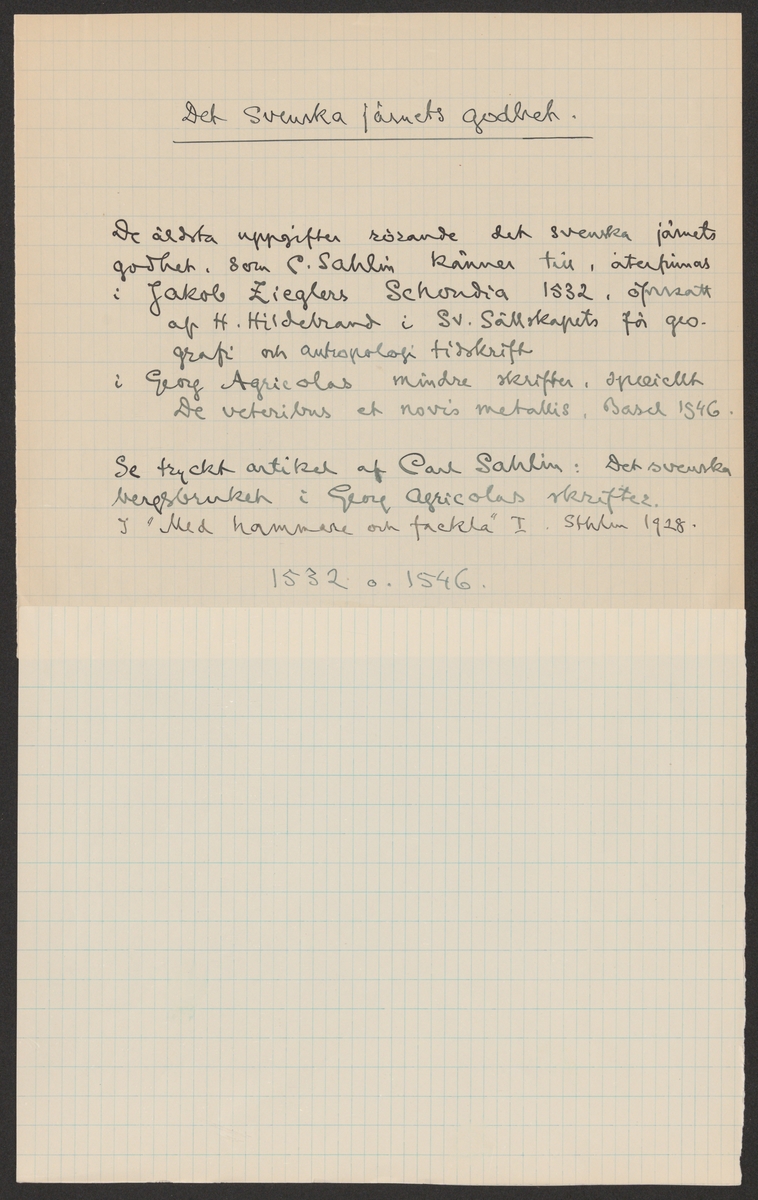 Det Svenska järnets godhet.
De äldsta uppgifter rörande det svenska järnets
godhet, som C. Sahlin känner till, återfinnas
i Jakob Zieglers Schondia 1532, öfversatt
af H. Hildebrand i Sv. Sällskapets för geo-
grafi och antropologi tidskrift
i Georg Agricolas mindre skrifter, speciellt
De veteribus et novis metallis, Basel 1546.
Se tryckt artikel af Carl Sahlin: Det svenska
bergsbruket i Georg Agricolas skrifter.
I "Med hammare och fackla" I. Sthlm 1928.
1532 o. 1546.